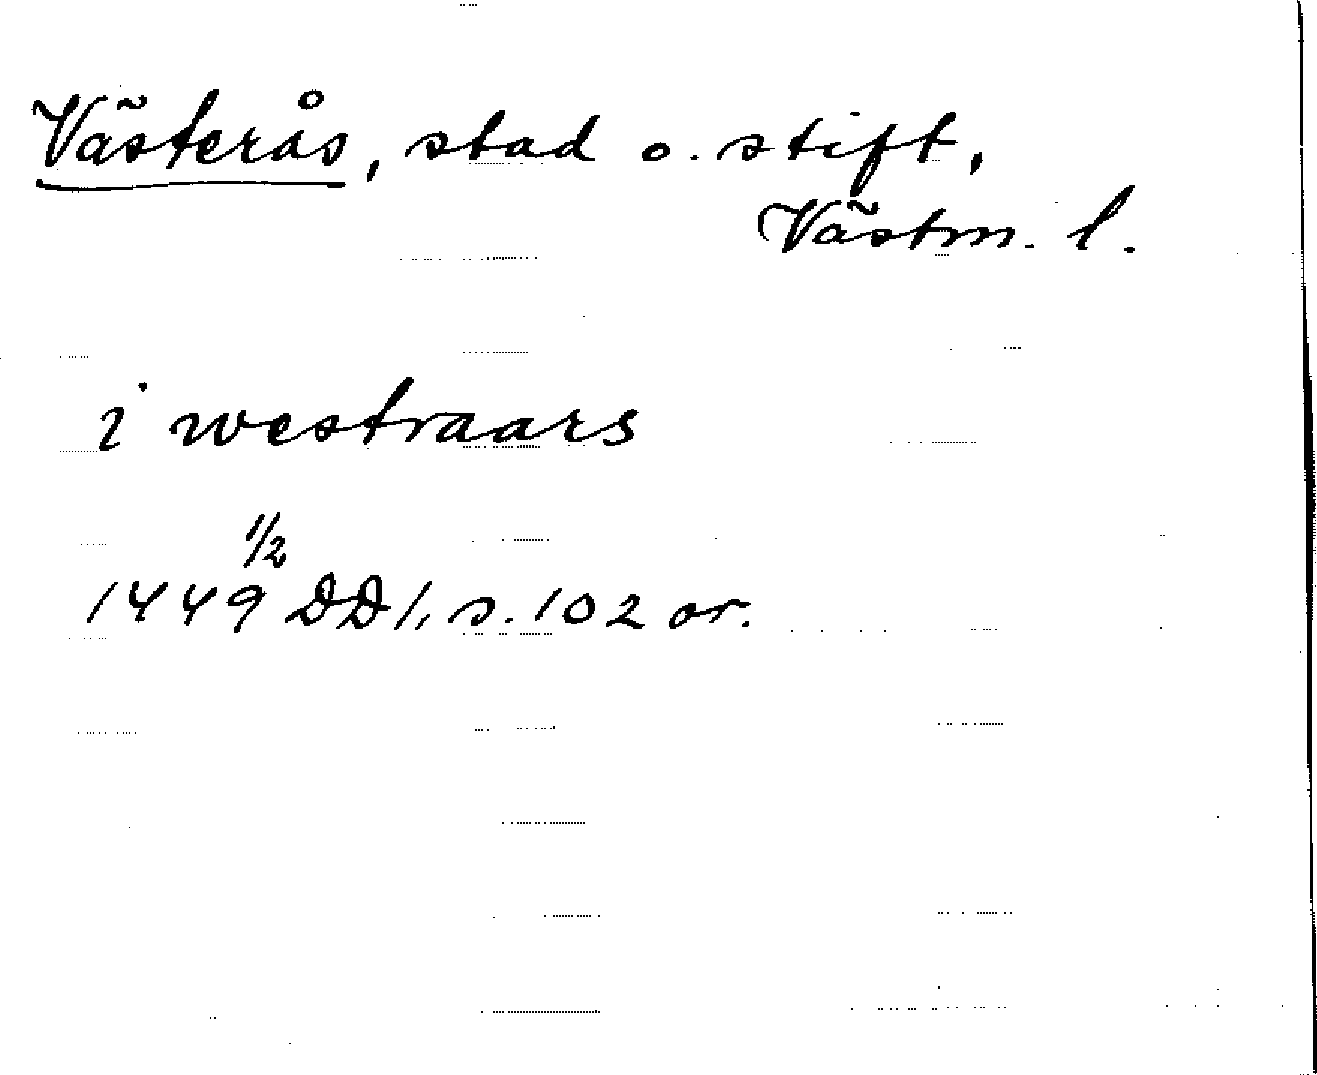 Västerås, stad o. stift,
Västm. l.
i westraars
1/2
1449 DD 1, s. 102 or.